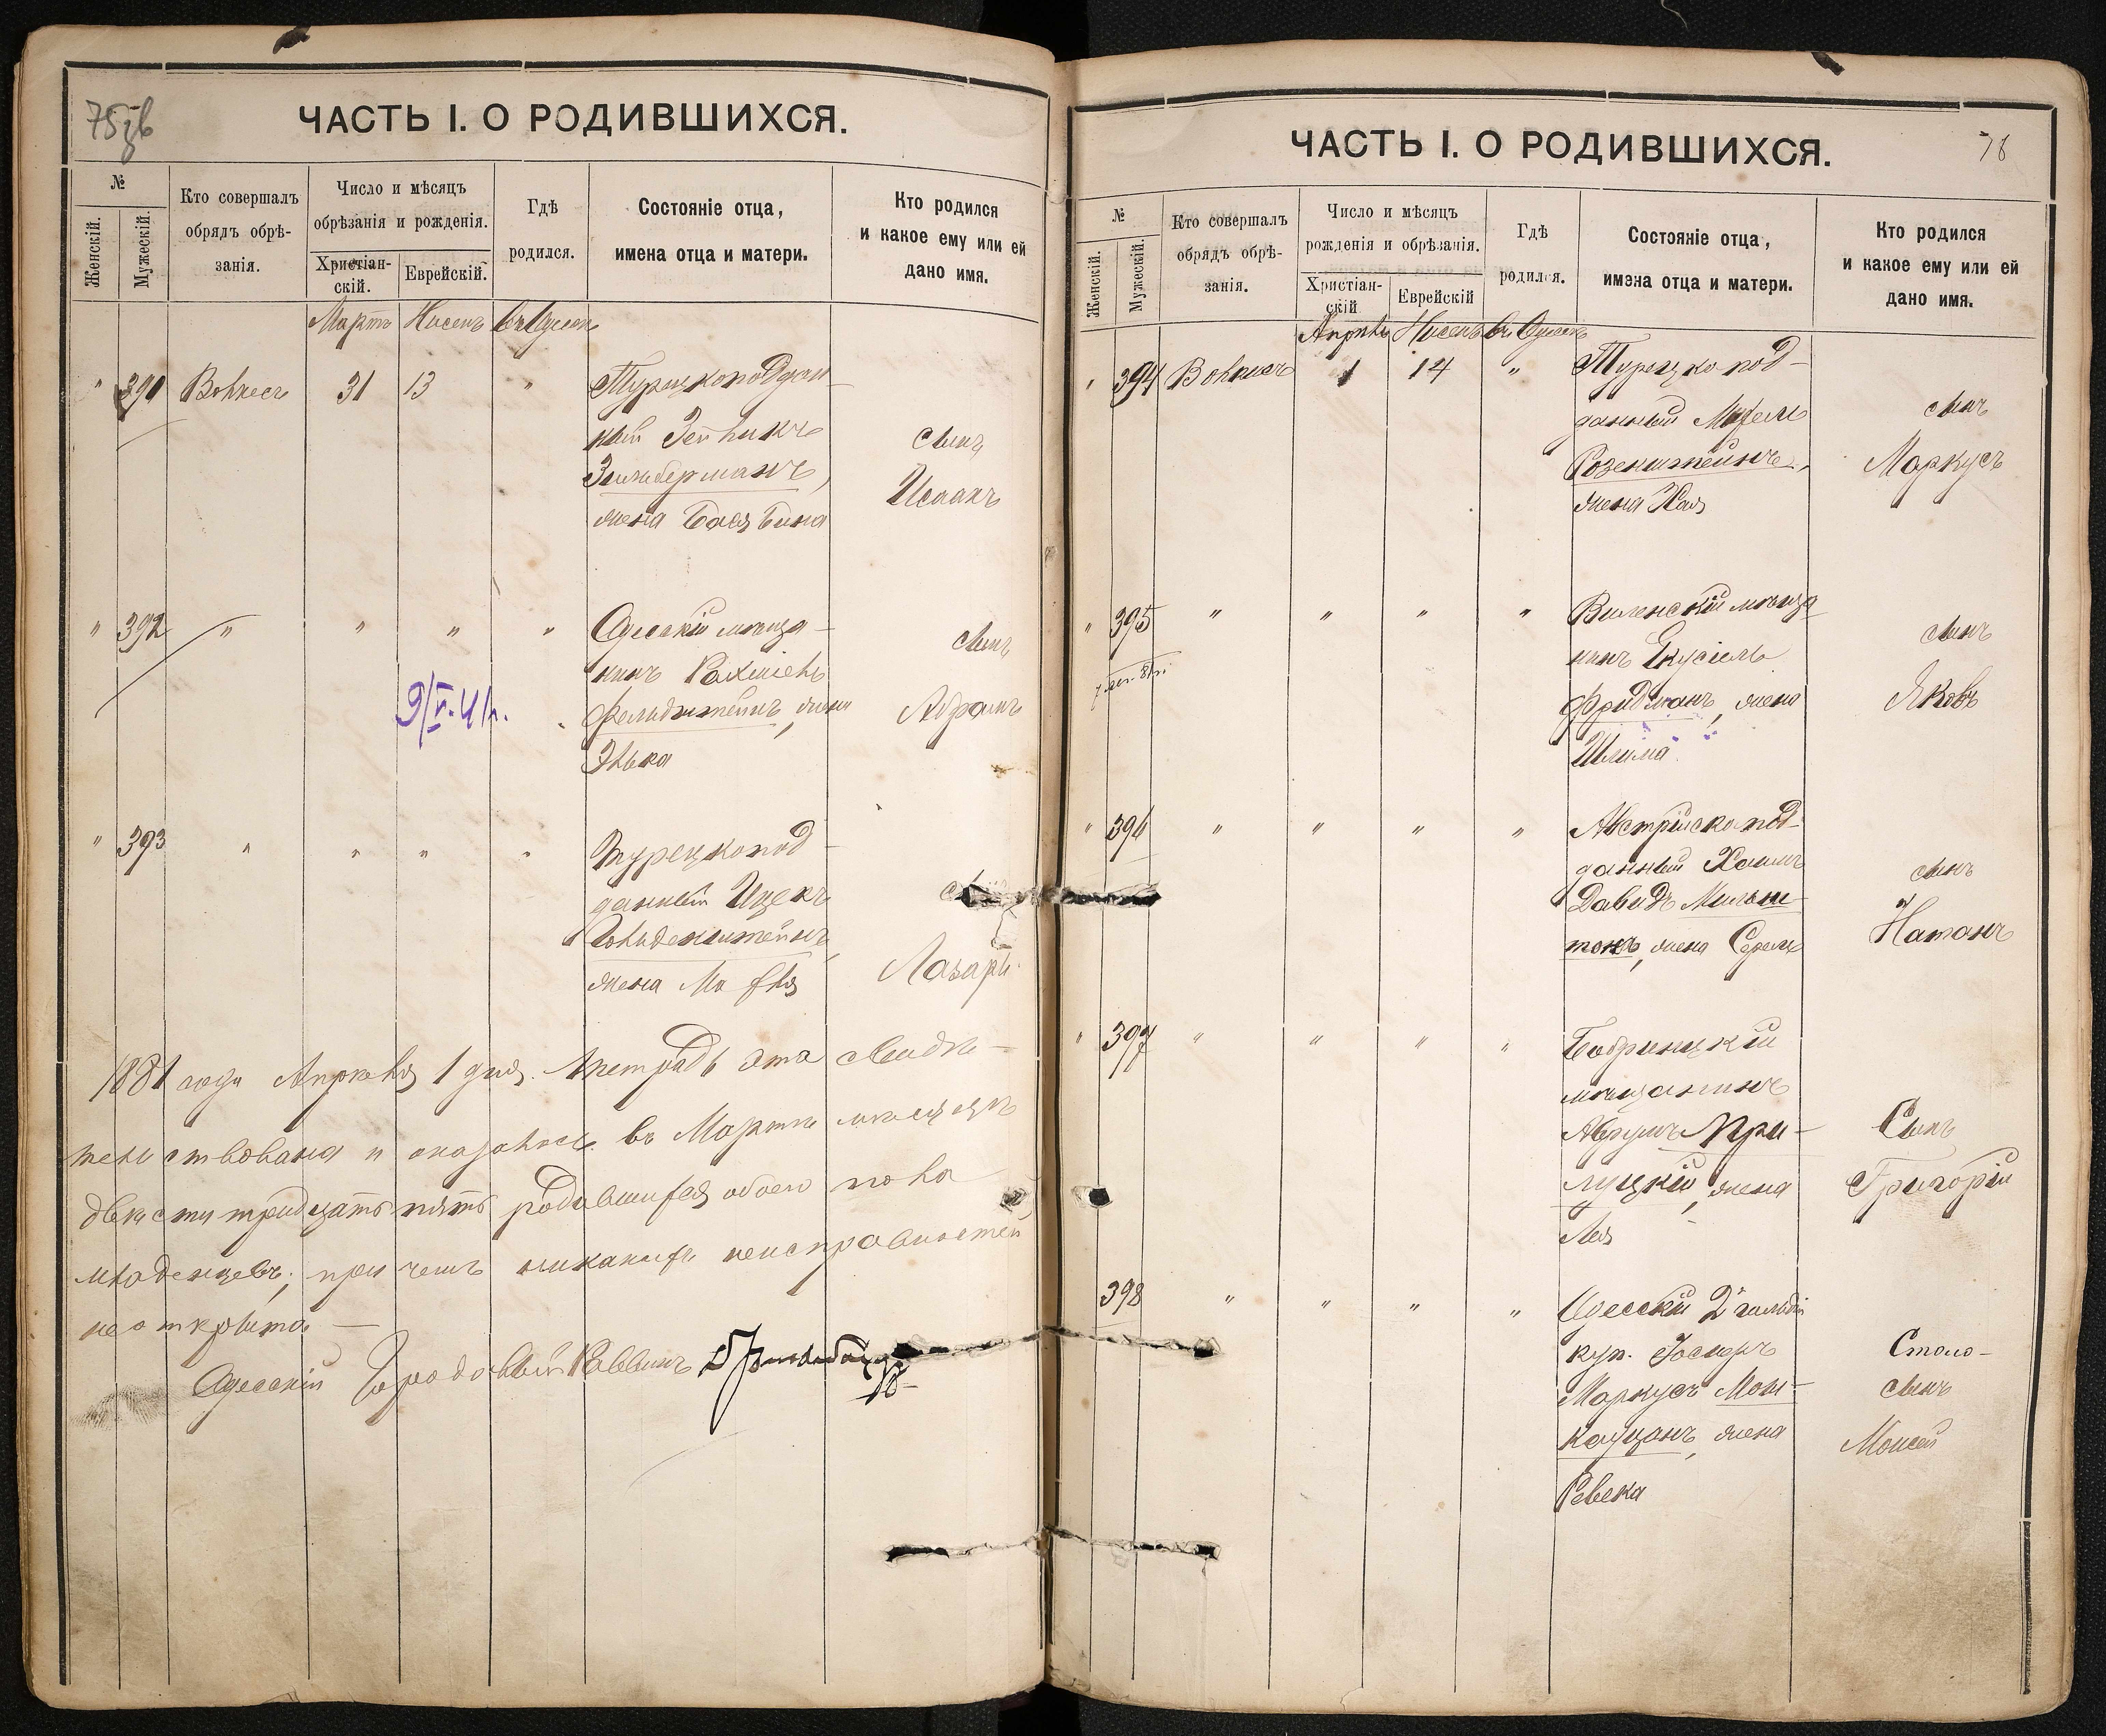 ЧАСТЬ I. О РОДИВШИХСЯ.
№
Женскій.
Мужескій.
Кто совершалъ
обрядъ обрѣ-
занія.
Число и мѣсяцъ
обрѣзанія и рожденія.
Христіан-
скій.
Еврейскій.
Гдѣ
родился.
Состояніе отца,
имена отца и матери.
Кто родился
и какое ему или ей
дано имя.
Мартъ Нисенъ въ Одессѣ
" 391 31 13 " Турецкоподдан-
ный Зейликъ
Зильберманъ,
жена Бася Бина
сынъ
Исаакъ
" 392 " " " " Одесскій мѣща-
нинъ Рахміель
Фельдштейнъ, жена
Элька
сынъ
Абрамъ
9/V.41г.
" 393 " " " " Турецкопод-
данный Ицекъ
Гольденштейнъ,
жена Махля
Лазарь
1881 года Апрѣля 1 дня. Тетрадь эта свидѣ-
тельствована и оказалось въ Мартѣ мѣсяцѣ
двѣсти тридцать пять родившихся обоего пола
младенцевъ; при чемъ никакихъ неисправностей
не открыто. —
Одесскій Городовый Раввинъ
ЧАСТЬ I. О РОДИВШИХСЯ.
№
Женскій.
Мужескій.
Кто совершалъ
обрядъ обрѣ-
занія.
Число и мѣсяцъ
рожденія и обрѣзанія.
Христіан-
скій
Еврейскій
Гдѣ
родился.
Состояніе отца,
имена отца и матери.
Кто родился
и какое ему или ей
дано имя.
Апрѣль Нисенъ въ Одессѣ
" 394 1 14 " Турецко-под-
данный
Розенштейнъ,
жена Хая
сынъ
Маркусъ
" 395 " " " " Виленскій мѣща
нинъ Екусіель
Фридманъ, жена
Шлима
сынъ
Яковъ
" 396 " " " " Австрійскопод-
данный Хаимъ
Давидъ Мильш-
токъ, жена
сынъ
Натанъ
" 397 " " " " Бобринецкій
мѣщанинъ
Абрумъ При-
луцкій, жена
Лея
Сынъ
Григорій
398 " " " " Одесскій 2й гильдіи
куп. Іосперъ
Маркусъ
жена
Ревека
сынъ
Моисей